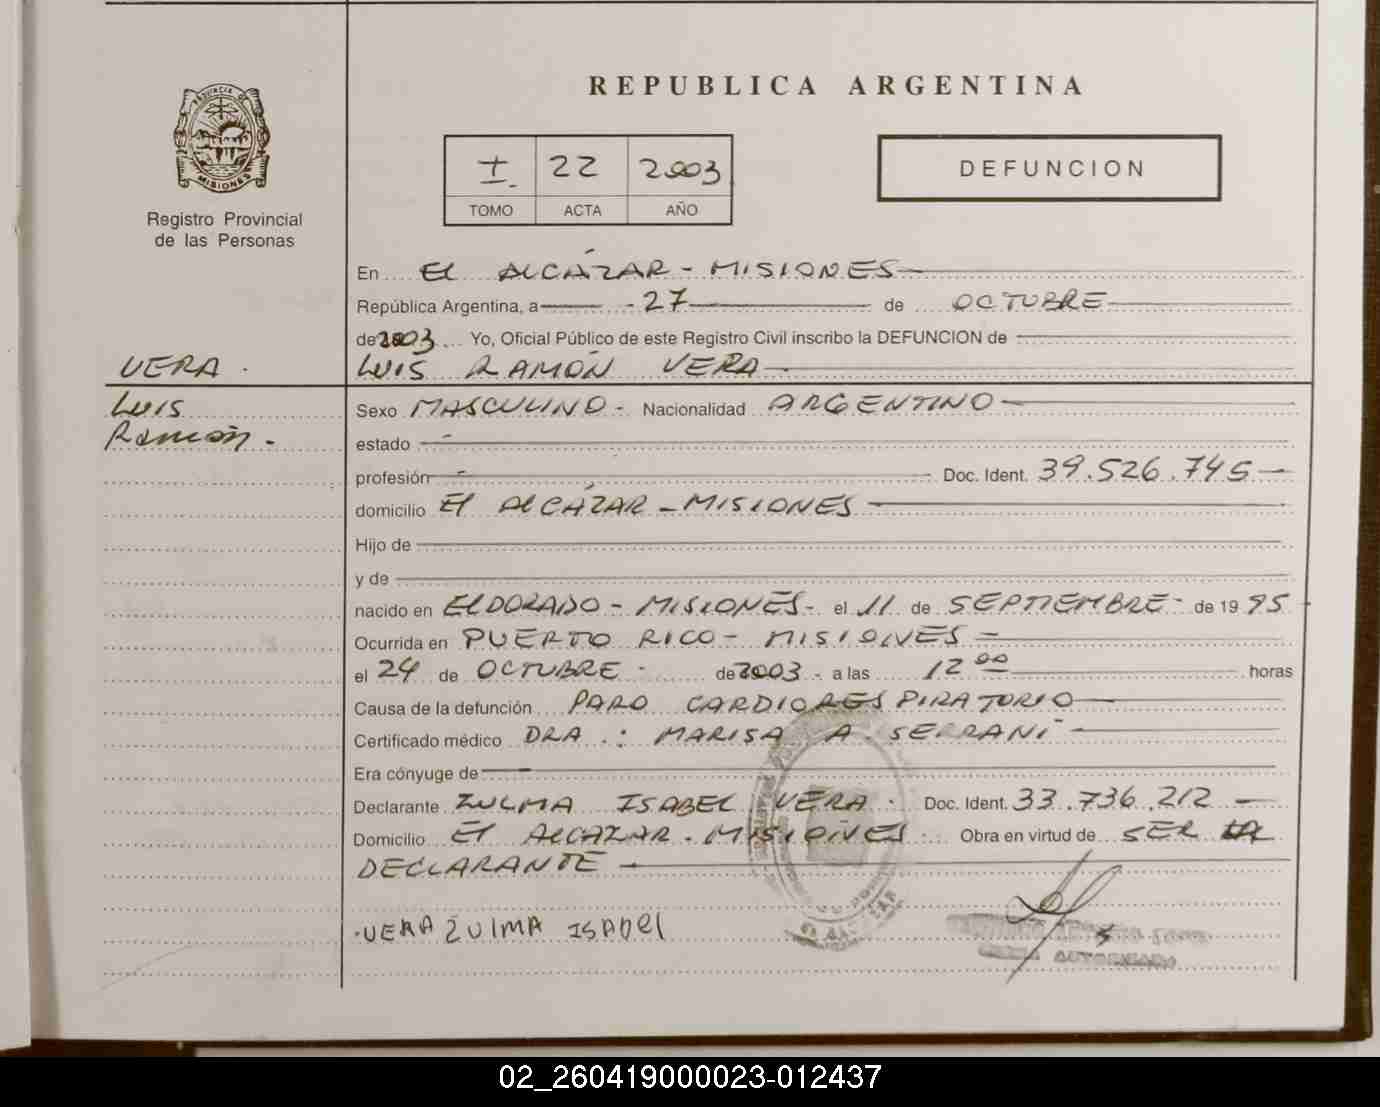 REPUBLICA ARGENTINA
PROVINCIA DE MISIONES
Registro Provincial
de las Personas
I 22 2003
TOMO ACTA AÑO
DEFUNCION
En El ALCÁZAR - MISIONES
República Argentina, a - 27 de OCTUBRE
de 2003 Yo, Oficial Público de este Registro Civil inscribo la DEFUNCION de
VERA.
LUIS RAMÓN VERA
Luis
Ramón.
Sexo MASCULINO - Nacionalidad ARGENTINO
estado -
profesión - Doc. Ident. 39.526.745
domicilio El ALCÁZAR - MISIONES
Hijo de
y de
nacido en ELDORADO - MISIONES - el 11 de SEPTIEMBRE - de 19 95
Ocurrida en PUERTO RICO - MISIONES
el 24 de OCTUBRE - de 2003 - a las 12 00 horas
Causa de la defunción PARO CARDIORESPIRATORIO
Certificado médico DRA.: MARISA A. SERRANI
Era cónyuge de
Declarante ZULMA ISABEL VERA. Doc. Ident. 33.736.212
Domicilio El ALCAZAR - MISIONES Obra en virtud de SER LA
DECLARANTE
VERA ZULMA ISABEl
AUTORIZADO
02_260419000023-012437